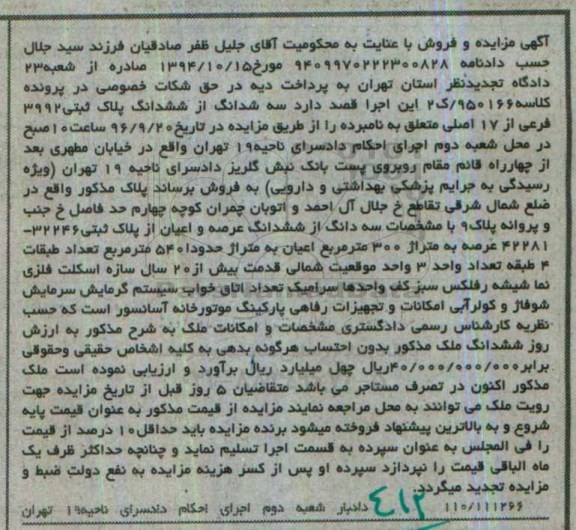 آگهی مزایده و فروش با عنایت به محکومیت آقای جلیل ظفر صادقیان فرزند سید جلال
حسب دادنامه ۹۴۰۹۹۷۰۲۲۲۳۰۰۸۲۸ مورخ۱۳۹۴/۱۰/۱۵ صادره از شعبه۲۳
دادگاه تجدیدنظر استان تهران به پرداخت دیه در حق شکات خصوصی در پرونده
کلاسه۹۵۰۱۶۶/ک۲ این اجرا قصد دارد سه شدانگ از ششدانگ پلاک ثبتی۳۹۹۲
فرعی از ۱۷ اصلی متعلق به نامبرده را از طریق مزایده در تاریخ۹۶/۹/۲۰ ساعت۱۰صبح
در محل شعبه دوم اجرای احکام دادسرای ناحیه۱۹ تهران واقع در خیابان مطهری بعد
از چهارراه قائم مقام روبروی پست بانک نبش گلریز دادسرای ناحیه ۱۹ تهران (ویژه
رسیدگی به جرایم پزشکی بهداشتی و دارویی) به فروش برساند پلاک مذکور واقع در
ضلع شمال شرقی تقاطع خ جلال آل احمد و اتوبان چمران کوچه چهارم حد فاصل خ جنب
و پروانه پلاک۹ با مشخصات سه دانگ از ششدانگ عرصه و اعیان از پلاک ثبتی۳۲۲۴۶-
۴۲۲۸۱ عرصه به متراژ ۳۰۰ مترمربع اعیان به متراژ حدودا۵۴۰ مترمربع تعداد طبقات
۴ طبقه تعداد واحد ۳ واحد موقعیت شمالی قدمت بیش از۲۰ سال سازه اسکلت فلزی
نما شیشه رفلکس سبز کف واحدها سرامیک تعداد اتاق خواب سیستم گرمایش سرمایش
شوفاژ و کولرآبی امکانات و تجهیزات رفاهی پارکینگ موتورخانه آسانسور است که حسب
نظریه کارشناس رسمی دادگستری مشخصات و امکانات ملک به شرح مذکور به ارزش
روز ششدانگ ملک مذکور بدون احتساب هرگونه بدهی به کلیه اشخاص حقیقی وحقوقی
برابر۴۰/۰۰۰/۰۰۰/۰۰۰ریال چهل میلیارد ریال برآورد و ارزیابی نموده است ملک
مذکور اکنون در تصرف مستاجر می باشد متقاضیان ۵ روز قبل از تاریخ مزایده جهت
رویت ملک می توانند به محل مراجعه نمایند مزایده از قیمت مذکور به عنوان قیمت پایه
شروع و به بالاترین پیشنهاد فروخته میشود برنده مزایده باید حداقل۱۰ درصد از قیمت
را فی المجلس به عنوان سپرده به قسمت اجرا تسلیم نماید و چنانچه حداکثر ظرف یک
ماه الباقی قیمت را نپردازد سپرده او پس از کسر هزینه مزایده به نفع دولت ضبط و
مزایده تجدید میگردد.
۱۱۰/۱۱۱۲۶۶ ۴۱۲ دادیار شعبه دوم اجرای احکام دادسرای ناحیه۱۹ تهران